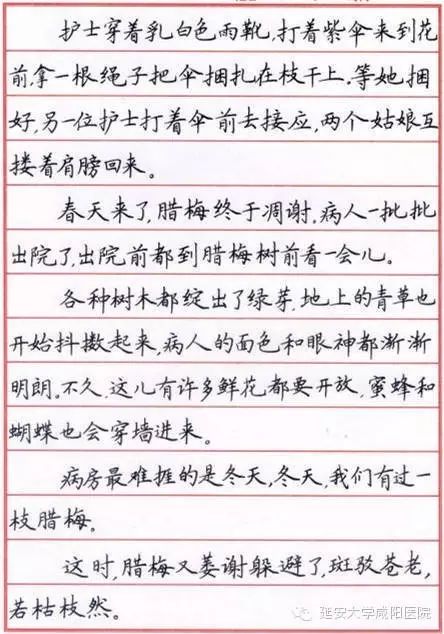 护士穿着乳白色雨靴,打着紫伞来到花
前,拿一根绳子把伞捆扎在枝干上.等她捆
好,另一位护士打着伞前去接应,两个姑娘互
搂着肩膀回来。
春天来了,腊梅终于凋谢.病人一批批
出院了,出院前都到腊梅树前看一会儿。
各种树木都绽出了绿芽,地上的青草也
开始抖擞起来,病人的面色和眼神都渐渐
明朗。不久,这儿有许多鲜花都要开放,蜜蜂和
蝴蝶也会穿墙进来。
病房最难捱的是冬天,冬天,我们有过一
枝腊梅。
这时,腊梅又萎谢躲避了,斑驳苍老,
若枯枝然。
延安大学咸阳医院